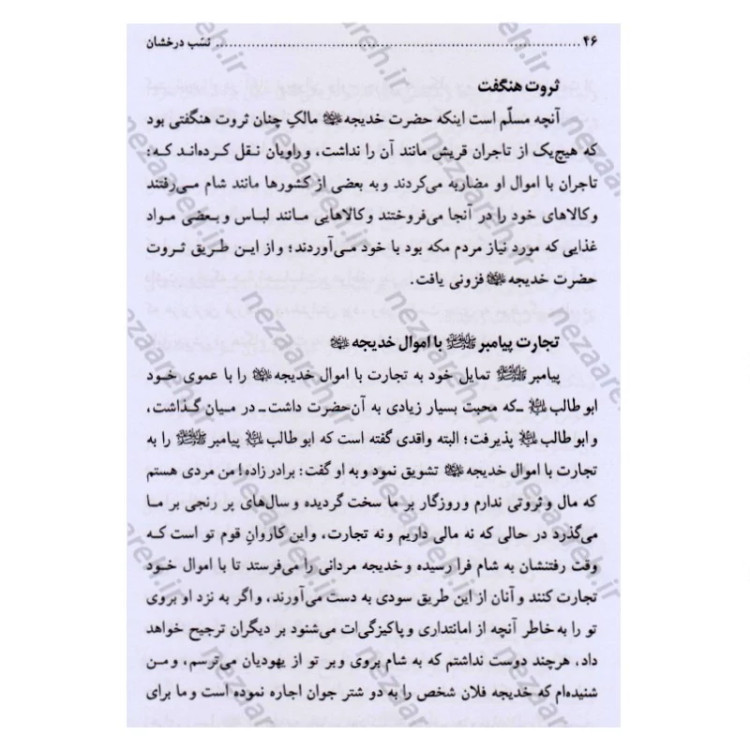 ۴۶ ........ نسب درخشان
ثروت هنگفت
آنچه مسلّم است اینکه حضرت خدیجه مالکِ چنان ثروت هنگفتی بود
که هیچ‌یک از تاجران قریش مانند آن را نداشت، و راویان نقل کرده‌اند که:
تاجران با اموال او مضاربه می‌کردند و به بعضی از کشورها مانند شام می‌رفتند
و کالاهای خود را در آنجا می‌فروختند و کالاهایی مانند لباس و بعضی مواد
غذایی که مورد نیاز مردم مکه بود با خود می‌آوردند؛ و از این طریق ثروت
حضرت خدیجه فزونی یافت.
تجارت پیامبر ﷺ با اموال خدیجه
پیامبر ﷺ تمایل خود به تجارت با اموال خدیجه را با عموی خود
ابوطالب ـ که محبت بسیار زیادی به آن‌حضرت داشت ـ در میان گذاشت،
و ابوطالب پذیرفت؛ البته واقدی گفته است که ابوطالب پیامبر ﷺ را به
تجارت با اموال خدیجه تشویق نمود و به او گفت: برادرزاده! من مردی هستم
که مال و ثروتی ندارم و روزگار بر ما سخت گردیده و سال‌های پر رنجی بر ما
می‌گذرد در حالی که نه مالی داریم و نه تجارت، و این کاروانِ قوم تو است که
وقت رفتنشان به شام فرا رسیده و خدیجه مردانی را می‌فرستد تا با اموال خود
تجارت کنند و آنان از این طریق سودی به دست می‌آورند، و اگر به نزد او بروی
تو را به خاطر آنچه از امانتداری و پاکیزگی‌ات می‌شنود بر دیگران ترجیح خواهد
داد، هرچند دوست نداشتم که به شام بروی و بر تو از یهودیان می‌ترسم، و من
شنیده‌ام که خدیجه فلان شخص را به دو شتر جوان اجاره نموده است و ما برای
nezaareh.ir